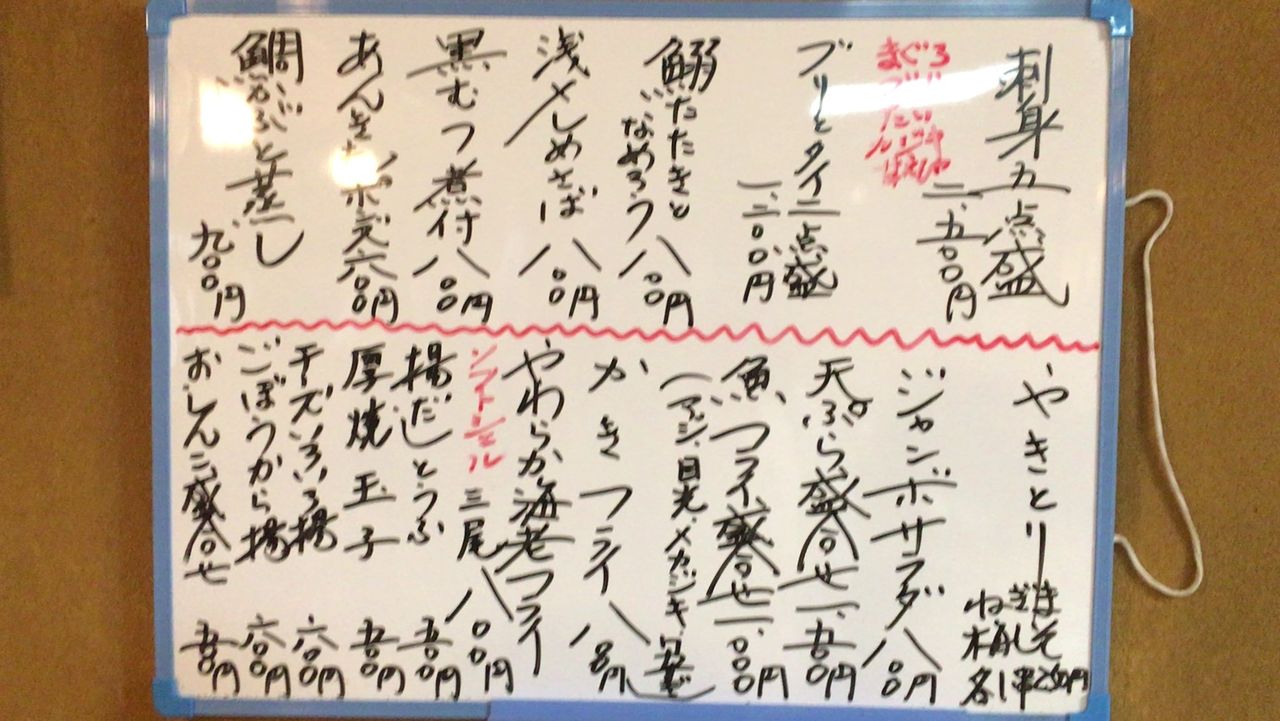 刺身五点盛
二、五〇〇円
まぐろ
ブリ
たい
ブリとタイ二点盛
一、二〇〇円
鰯たたきと
なめろう
八〇〇円
浅〆しめさば
八〇〇円
黒むつ煮付
八〇〇円
あんきもポン酢
六〇〇円
鯛かぶと蒸し
九〇〇円
やきとり
ねぎま
梅しそ
各1串250円
ジャンボサラダ
八〇〇円
天ぷら盛合せ
一、五〇〇円
魚フライ盛合せ
一、〇〇〇円
(アジ、目光、メカジキ
かきフライ
八〇〇円
やわらか海老フライ
ソフトシェル
三尾
八〇〇円
揚だしとうふ
五〇〇円
厚焼玉子
五〇〇円
チーズいろいろ揚
六〇〇円
ごぼうから揚
六〇〇円
おしんこ盛合せ
五〇〇円